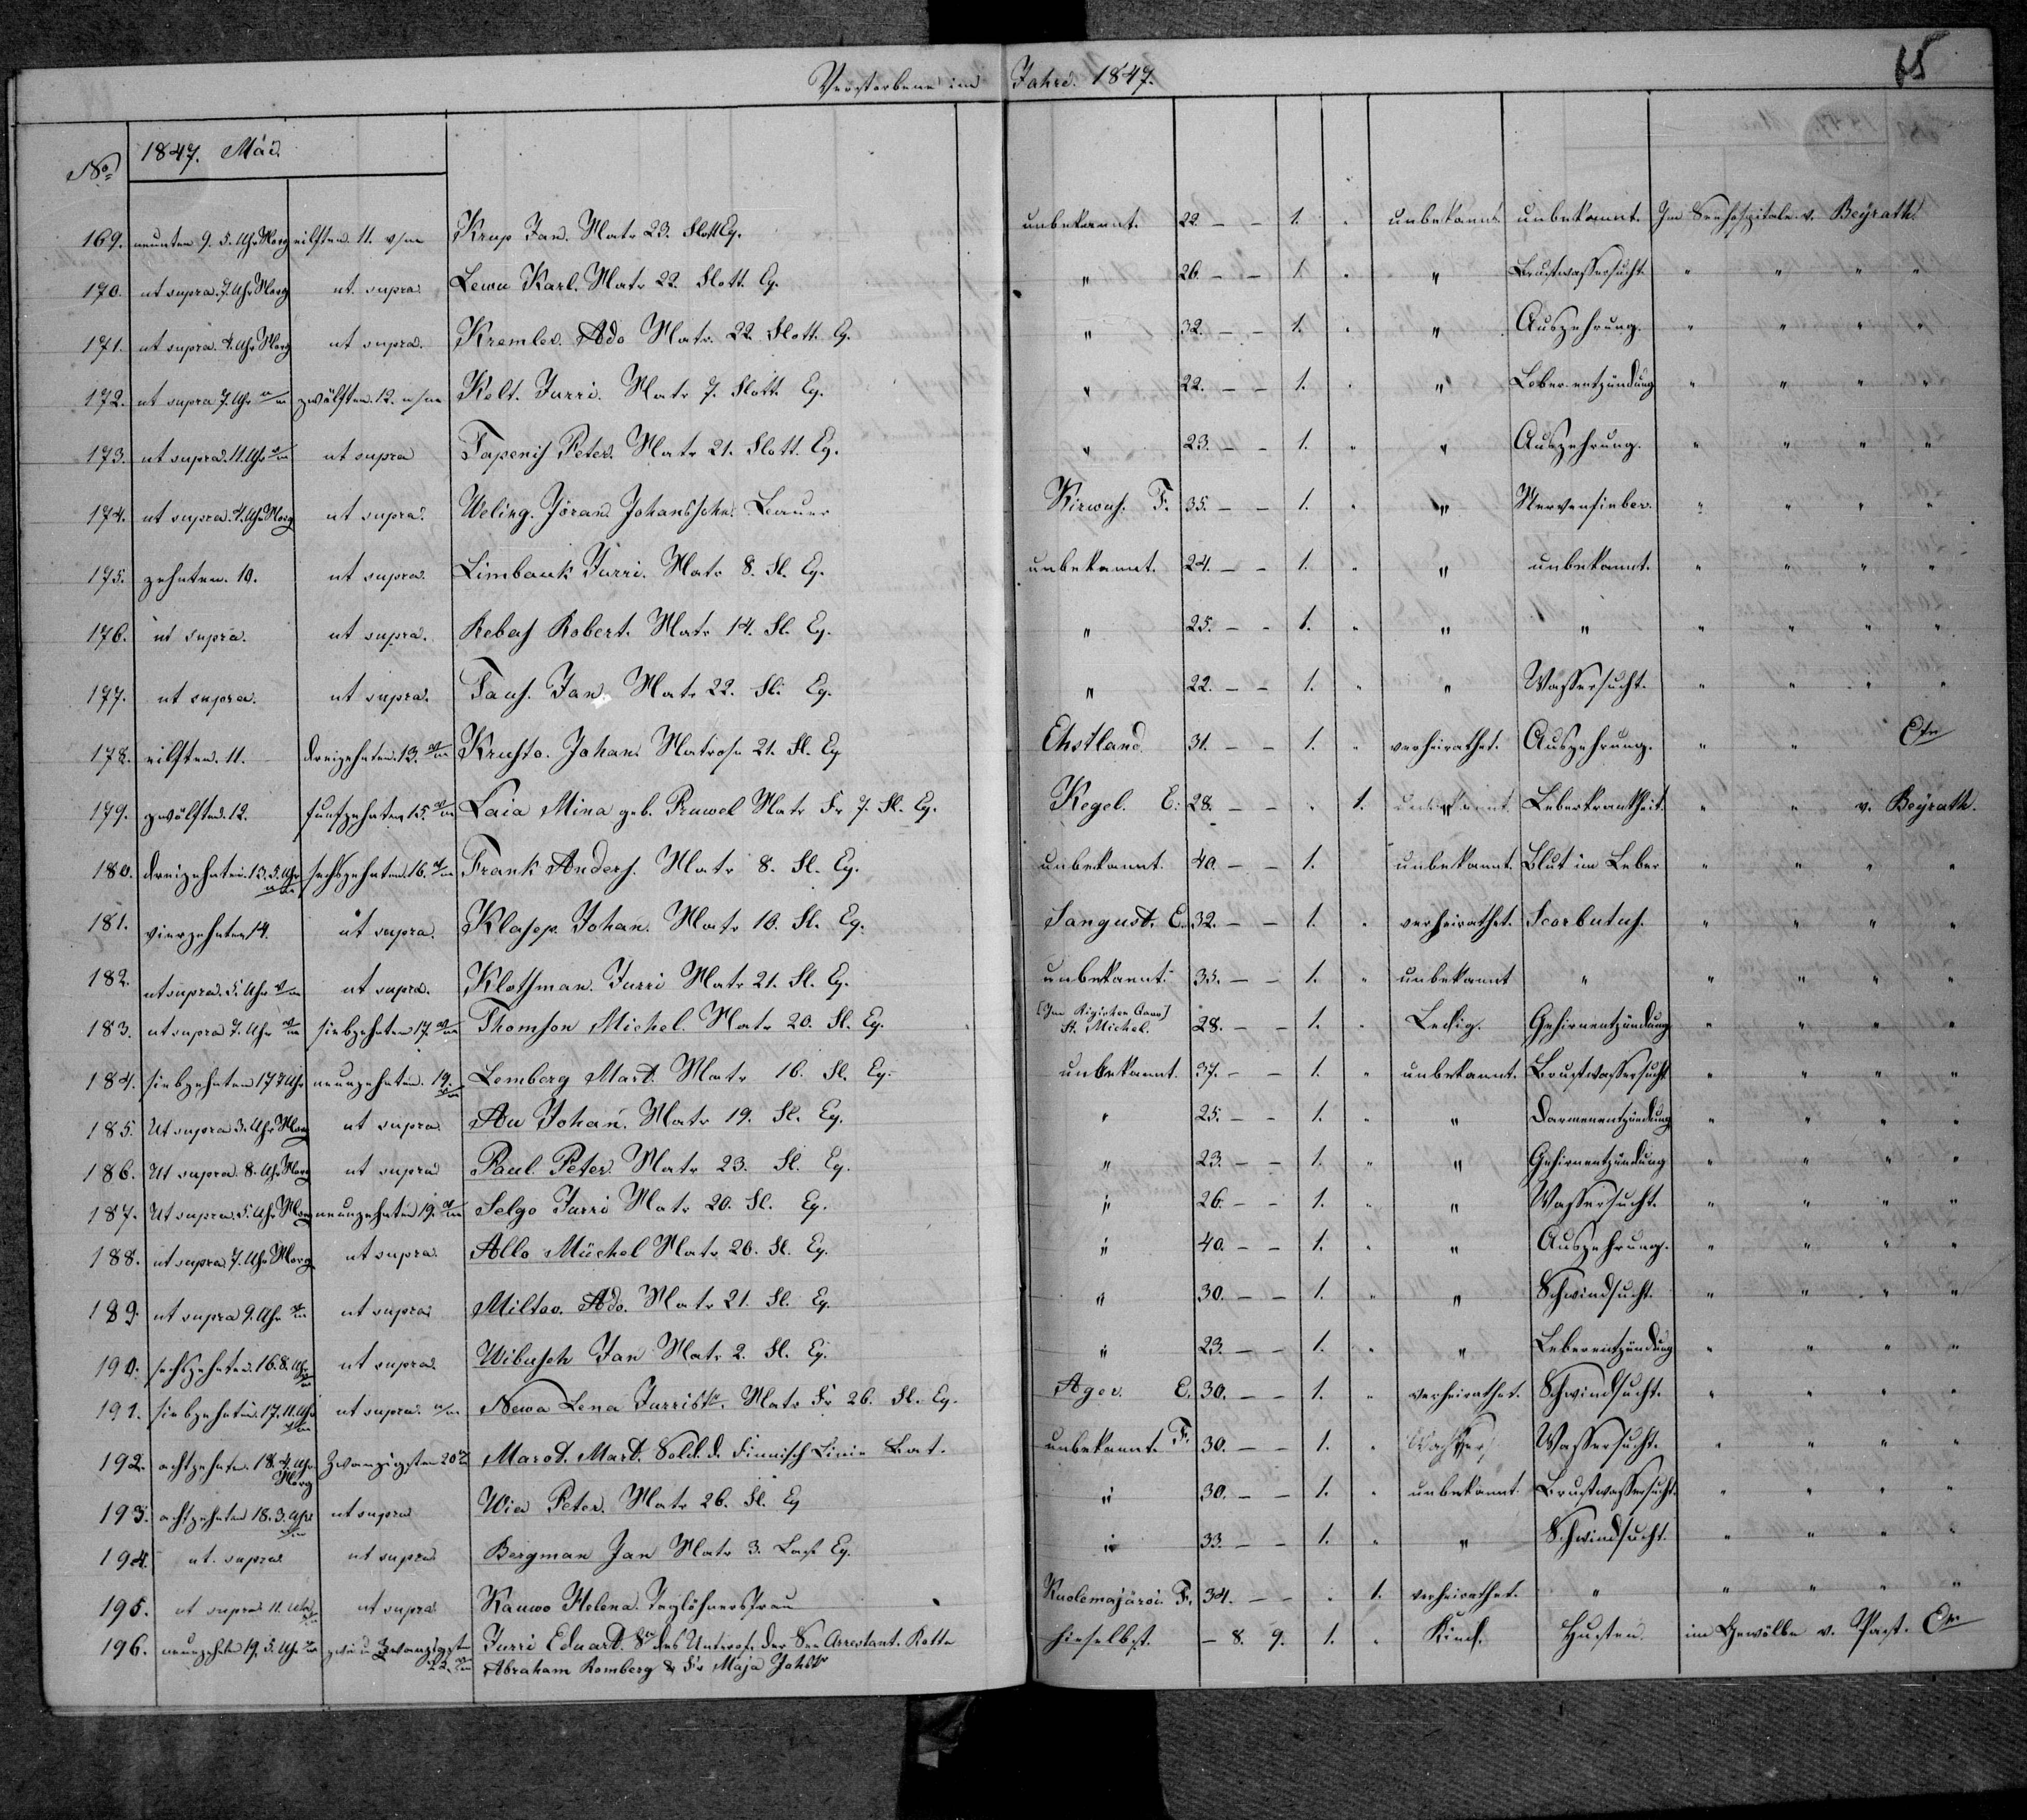 Verstorbene im Jahre 1847.
65
No 1847. Mai
169. neunten 9. 5. Uhr Morg eilften 11. v/m Krup Jan. Matr 23. Flott Eq. unbekannt. 22. - - 1. " unbekannt unbekannt. Im Seehospitale v. Beyrath.
170. ut supra. 7. Uhr Morg ut. supra Lewu Karl. Matr 22. Flott. Eq. " 26. - - 1. " " Brustwassersucht " " " "
171. ut supra. 4. Uhr Morg ut supra. Kremler. Ado Matr. 22. Flott. Eq. " 32. - - 1. " " Auszehrung. " " " "
172. ut supra 7. Uhr n/m zwölften. 12. n/m Kelt. Jurri. Matr 7. Flott Eq. " 22. - - 1. " " Leberentzündung " " " "
173. ut supra. 11. Uhr v/m ut supra Tapenis Peter. Matr 21. Flott. Eq. " 23. - - 1. " " Auszehrung. " " " "
174. ut supra. 4. Uhr Morg ut supra. Weling. Jöran. Johanssohn. Bauer Kirwus. F. 35. - - 1. " " Nervenfieber. " " " "
175. zehnten. 10. ut supra. Limbauk Jurri. Matr 8. Fl. Eq. unbekannt. 24. - - 1. " " unbekannt. " " " "
176. ut supra. ut supra. Rebas Robert. Matr 14. Fl. Eq. " 25. - - 1. " " " " " " "
177. ut supra. ut supra. Taus. Jan. Matr 22. Fl. Eq. " 22. - - 1. " " Wassersucht. " " " "
178. eilften. 11. dreizehnten. 13. v/m Krusto. Johan. Matrose 21. Fl. Eq Ehstland. 31. - - 1. " verheirathet. Auszehrung. " "
179. zwölften. 12. funfzehnten 15. v/m Laia Mina geb. Pruwel Matr Fr 7. Fl. Eq. Kegel. E. 28. - - " 1. " Leberkrankheit. " " v. Beyrath.
180. dreizehnten. 13. 5. Uhr n/m sechszehnten. 16. v/m Frank Anders. Matr 8. Fl. Eq. unbekannt. 40. - - 1. unbekannt. Blut im Leber " " " "
181. vierzehnten 14. ut supra. Klasep. Johan. Matr 10. Fl. Eq. Sangust. E. 32. - - 1. " verheirathet. Scorbutus. " " " "
182. ut supra. 5. Uhr v/m ut supra. Klotsman. Jurri Matr 21. Fl. Eq. unbekannt. 35. - - 1. " unbekannt " " " " "
183. ut supra 7. Uhr v/m siebzehnten 17. v/m Thomson Michel. Matr 20. Fl. Eq. [Im Rigischen Gouv] St. Michel. 28. - - 1. " Ledig. Gehirnentzündung " " " "
184. siebzehnten 17 Uhr neunzehnten. 19. v/m Lemberg Mart. Matr 16. Fl. Eq. unbekannt. 37. - - 1. " unbekannt. Brustwassersucht " " " "
185. Ut supra 3. Uhr Morg ut supra Au Johan. Matr 19. Fl. Eq. " 25. - - 1. " " Darmenentzündung " " " "
186. Ut supra. 8. Uhr Morg ut supra Paul. Peter. Matr 23. Fl. Eq. " 23. - - 1. " " Gehirnentzündung " " " "
187. Ut supra. 5. Uhr Morg neunzehnten 19. v/m Selgo Jurri Matr 20. Fl. Eq. " 26. - - 1. " " Wassersucht. " " " "
188. ut supra 7. Uhr Morg ut supra Allo Müchel Matr 20. Fl. Eq. " 40. - - 1. " " Auszehrung. " " " "
189. ut supra 9. Uhr v/m ut supra Miltow. Ado. Matr 21. Fl. Eq. " 30. - - 1. " " Schwindsucht. " " " "
190. sechszehnten. 16. 8. Uhr ut supra Wibusch Jan Matr 2. Fl. Eq. " 23. - - 1. " " Leberentzündung " " " "
191. siebzehnten. 17. 11. Uhr v/m ut supra. n/m Newa Lena Jurristr. Matr Fr 26. Fl. Eq. Ager. E. 30. - - 1. " verheirathet. Schwindsucht. " " " "
192. achtzehnten. 18. 4. Uhr Morg Zwanzigsten 20 Marot. Mart. Sold. d. Finnisch Linie Bat. unbekannt. F. 30. - - 1. " Wasser Wassersucht. " " " "
193. achtzehnten 18. 3. Uhr ut supra Wia Peter. Matr 26. Fl. Eq " 30. - - 1. " unbekannt. Brustwassersucht. " " " "
194. ut. supra ut supra Bergman Jan Matr 3. Last Eq. " 33. - - 1. " " Schwindsucht. " " " "
195. ut supra 11. Uhr ut supra Kauwo Helena. Taglöhnersfrau Kuolemajärvi. F. 34. - - " 1. verheirathet. " " " " "
196. neunzehnten 19. 5. Uhr zwei u Zwanzigsten 22. Jurri Eduard. Sn des Unterof. der See Arrestant. Rotte hieselbst. - 8. 9. 1. " Kind. Husten. im Gewölbe v. Past.
Abraham Romberg & Fr Maja Johstr